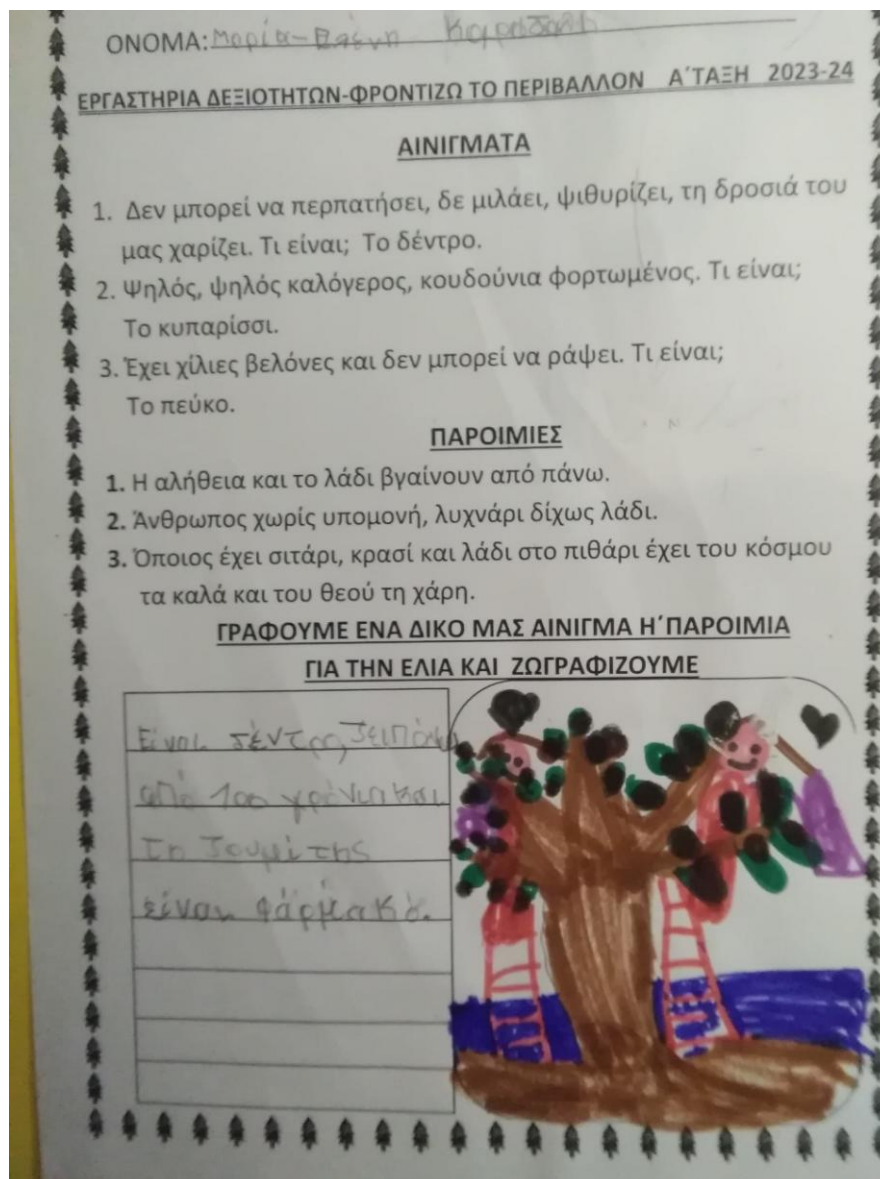 ΟΝΟΜΑ: Μαρία-Ελένη
ΕΡΓΑΣΤΗΡΙΑ ΔΕΞΙΟΤΗΤΩΝ-ΦΡΟΝΤΙΖΩ ΤΟ ΠΕΡΙΒΑΛΛΟΝ Α΄ΤΑΞΗ 2023-24
ΑΙΝΙΓΜΑΤΑ
1. Δεν μπορεί να περπατήσει, δε μιλάει, ψιθυρίζει, τη δροσιά του
μας χαρίζει. Τι είναι; Το δέντρο.
2. Ψηλός, ψηλός καλόγερος, κουδούνια φορτωμένος. Τι είναι;
Το κυπαρίσσι.
3. Έχει χίλιες βελόνες και δεν μπορεί να ράψει. Τι είναι;
Το πεύκο.
ΠΑΡΟΙΜΙΕΣ
1. Η αλήθεια και το λάδι βγαίνουν από πάνω.
2. Άνθρωπος χωρίς υπομονή, λυχνάρι δίχως λάδι.
3. Όποιος έχει σιτάρι, κρασί και λάδι στο πιθάρι έχει του κόσμου
τα καλά και του θεού τη χάρη.
ΓΡΑΦΟΥΜΕ ΕΝΑ ΔΙΚΟ ΜΑΣ ΑΙΝΙΓΜΑ Η΄ΠΑΡΟΙΜΙΑ
ΓΙΑ ΤΗΝ ΕΛΙΑ ΚΑΙ ΖΩΓΡΑΦΙΖΟΥΜΕ
Είναι δέντρο, ζει πάνω
από 100 χρόνια και
το ζουμί της
είναι φάρμακο.